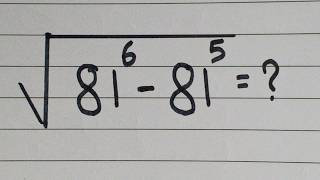 √81⁶ - 81⁵ = ?